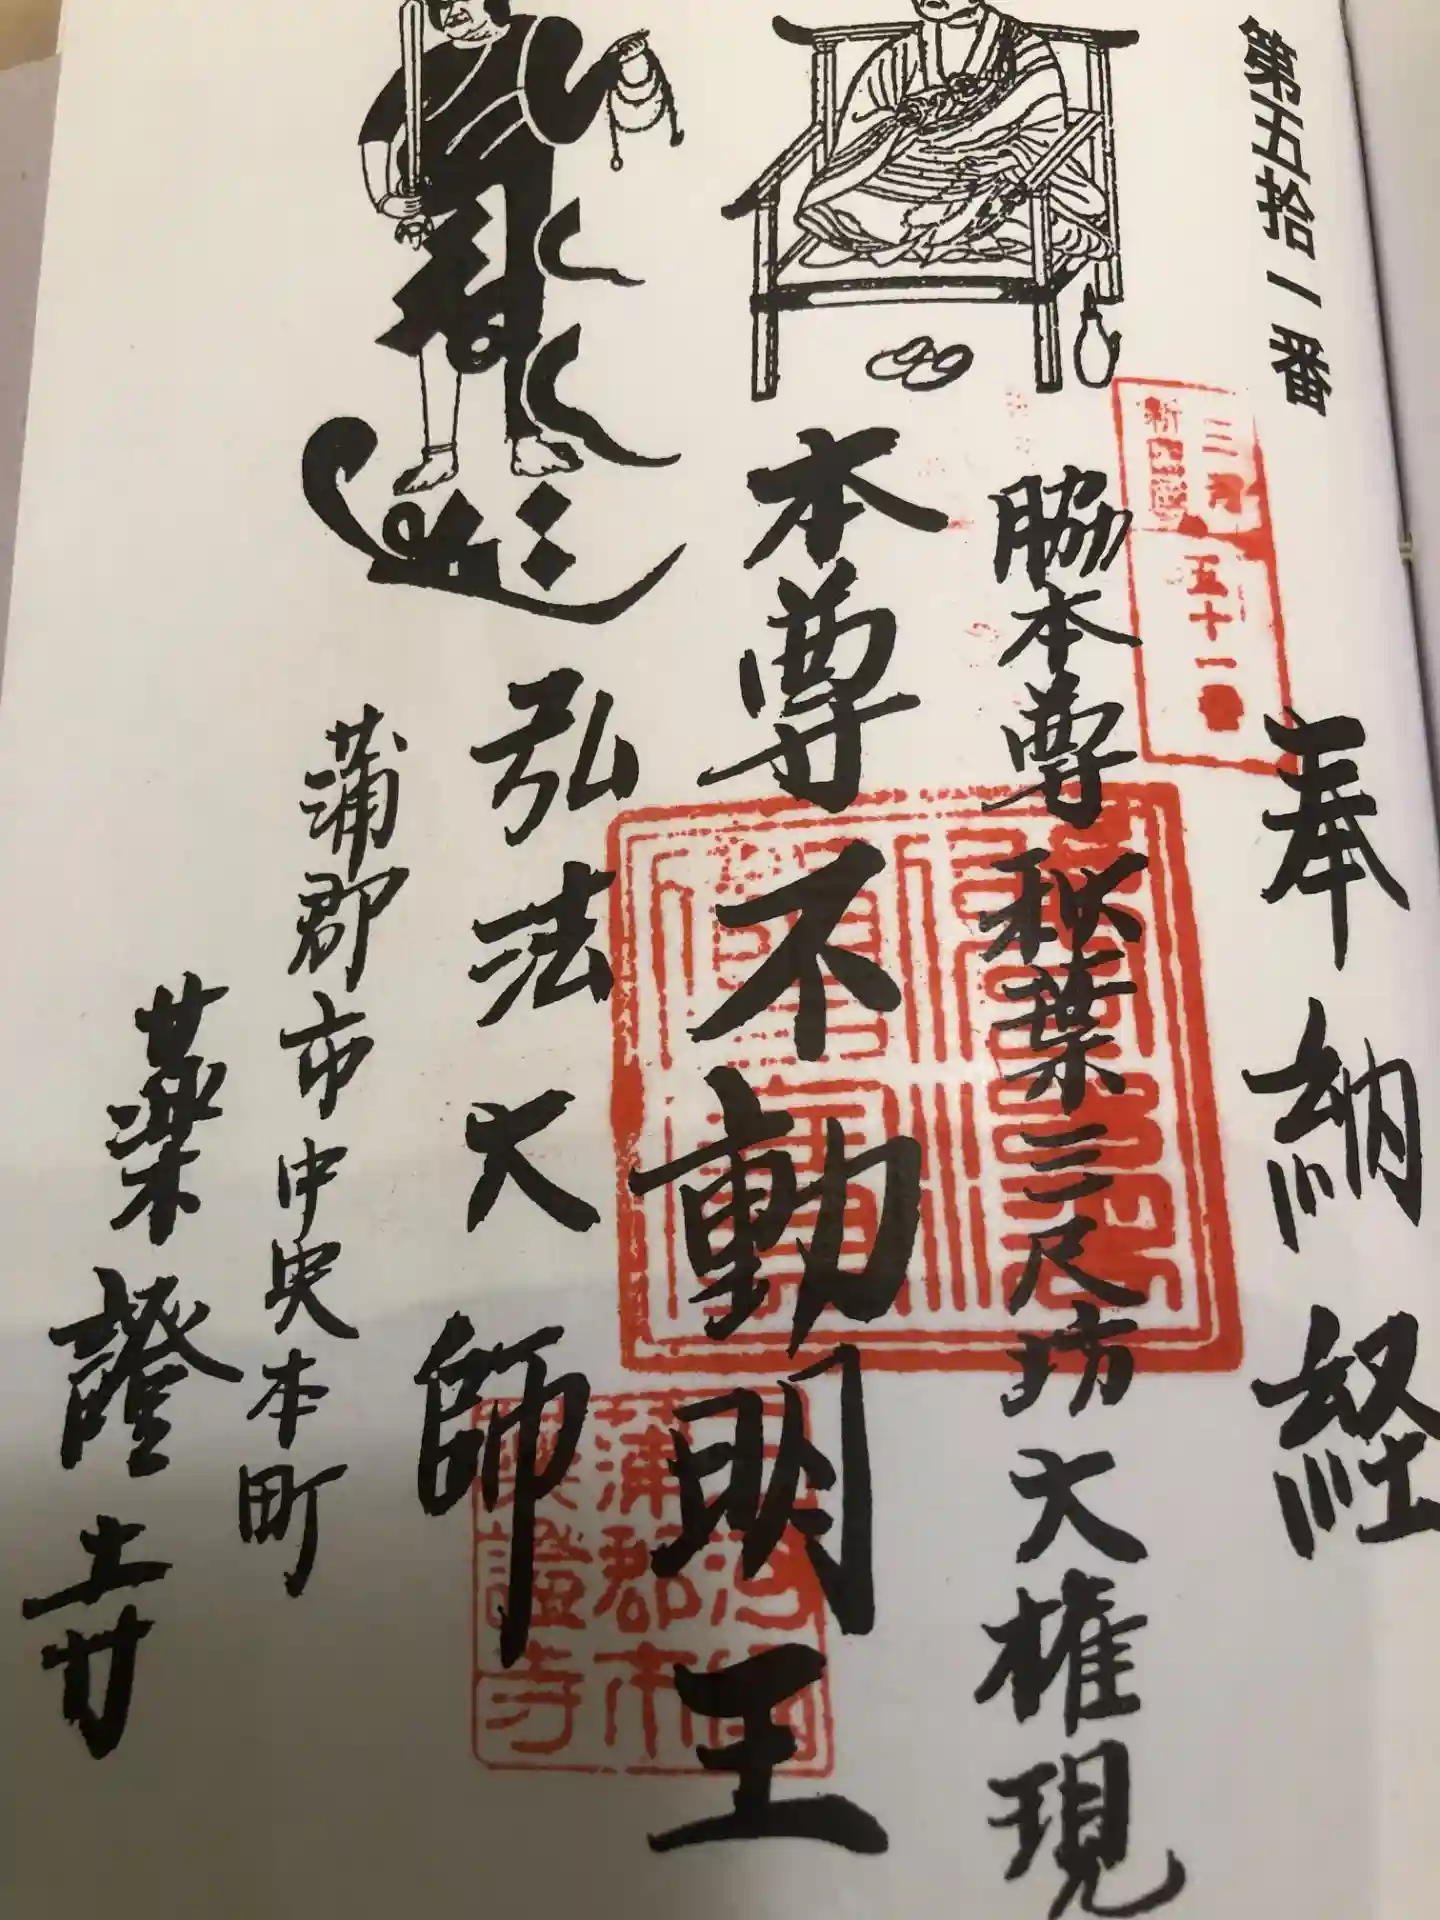 第五拾一番
奉納経
三河
新四国
五十一番
脇本尊秋葉三尺坊大権現
本尊不動明王
弘法大師
蒲郡市中央本町
薬證寺
三河国
蒲郡市
薬證寺